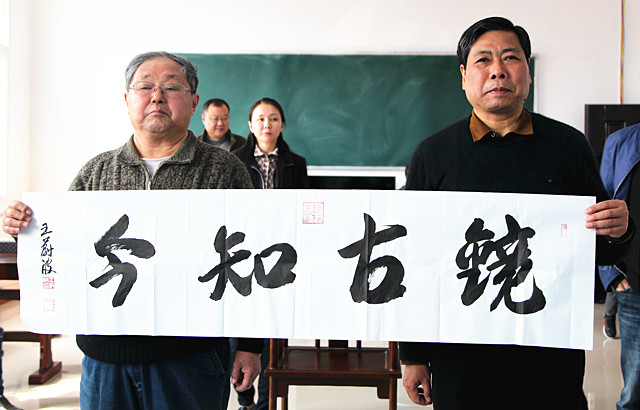 鏡古知今
王蔚波